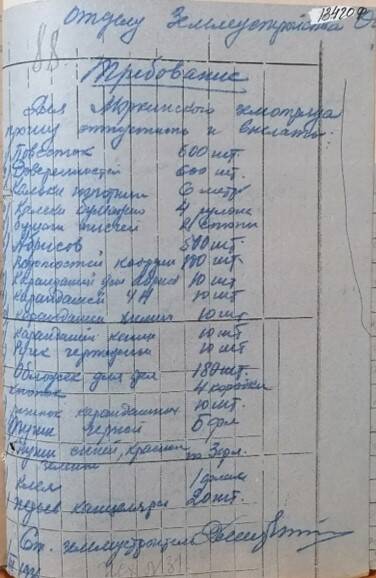 Отделу Землеустройства
18420
88
Требование
Для зем отряда
прошу отпустить и выслать:
Повесток 600 шт.
Доверенностей 600 шт.
Кальки 6 метр
Кальки бумажной 4 рулона
2 стопы
Абрисов 500 шт.
100 шт.
Карандашей для абриса 10 шт
карандашей 4Н 10 шт
карандашей химич 10 шт
карандашей 10 шт
Ручек чертежных 10 шт
Обложек для дел 180 шт.
кнопок 4 коробки
резинок карандашных 10 шт.
Туши черной 5 фл
Туши синей, красной
зелени по 3 фл.
Клея 1 флак
перьев канцеляр 20 шт.
Ст. землеустроитель